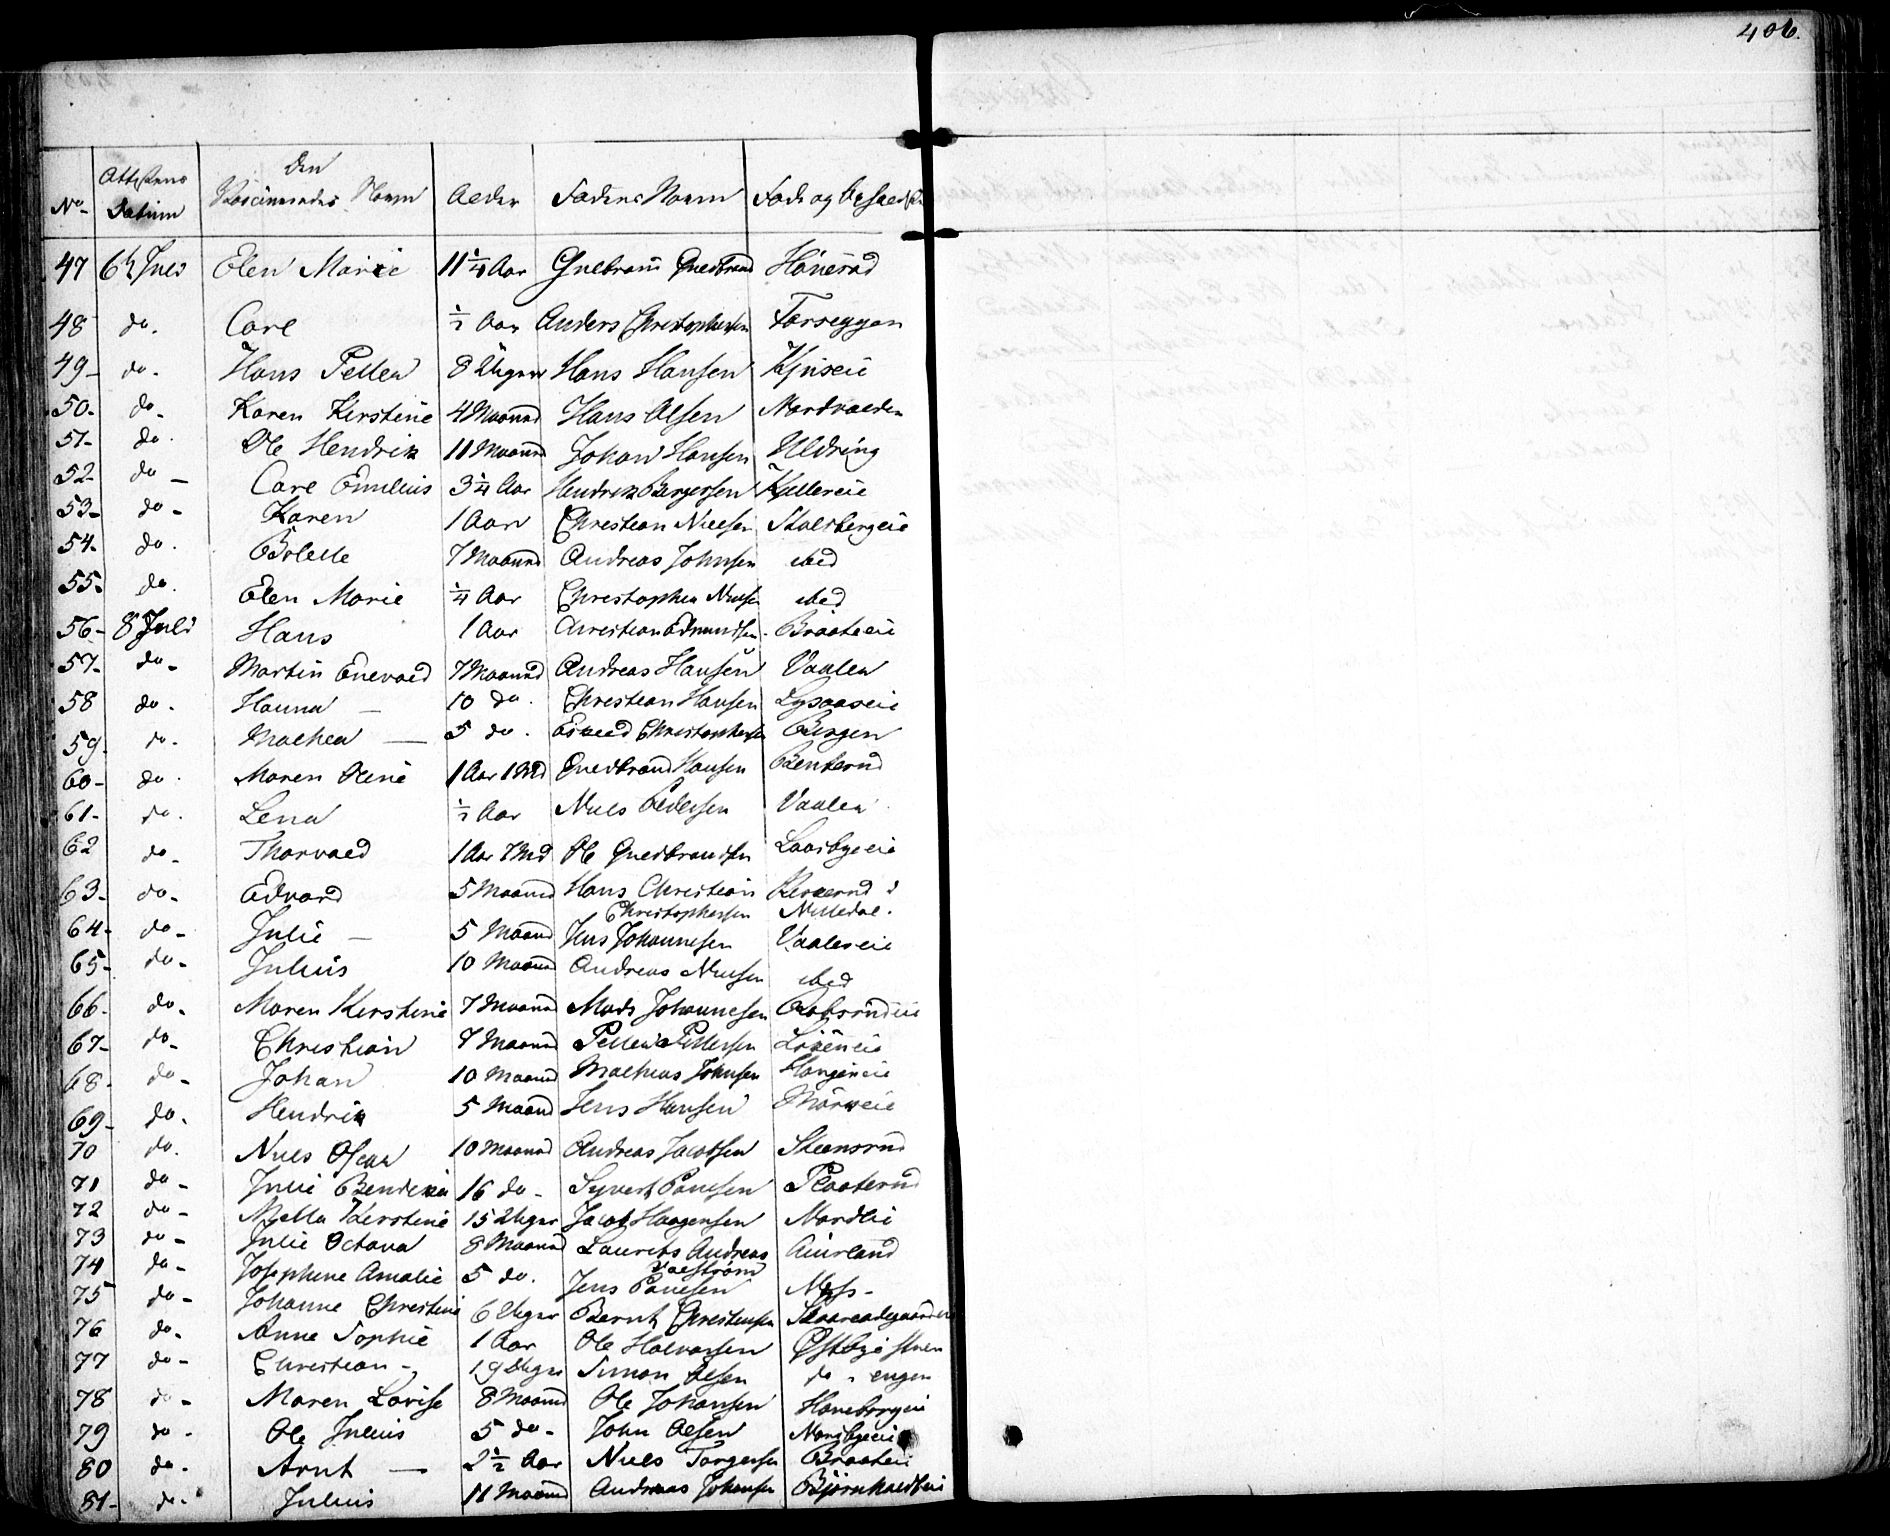 406.
No Attestens Datum Den Vaccineredes Navn Alder Faders Navn Føde og
47 6te Juli Elen Marie 11 1/4 Aar Gulbran Gulbrand
48 do. Carl 1/2 Aar Anders Christophersen Torseggen
49 do. Hans Petter 8 Uger Hans Hansen
50. do. Karen Kirstine 4 Maaned Hans Olsen Nordvolden
51. do. Ole Hendrik 11 Maaned Johan Hansen
52. do Carl Emilius 3 1/4 Aar Hendrik Bergersen
53. do. Karen 1 Aar Christian Nielsen Stalsbergeie
54. do. Bolette 7 Maaned Andreas Johnsen ibid
55. do. Elen Marie 1/4 Aar Christopher Nielsen ibid
56. 8 Juli Hans 1 Aar Christian Edmundsen Braateeie
57. do. Martin Enevold 7 Maaned Andreas Hansen Vaalen
58 do. Hanna 10 do. Christian Hansen Lysaaseie
59. do. Mathea 5 do. Christophersen Bergen
60. do. Maren Oline 1 Aar 1 Md Gulbrand Hansen Benterud
61. do. Lena 1/2 Aar Niels Pedersen Vaalen
62 do. Thorvald 1 Aar 7 Md Ole Gulbrandsen Laasbyeie
63. do. Edvard 5 Maaned Hans Christian Kirkerud i
Christophersen Nittedal.
64. do. Julie 5 Maaned Jens Johannesen Vaaleneie
65. do. Julius 10 Maaned Andreas Nielsen ibid
66. do. Maren Kirstine 7 Maaned Mads Johannesen
67. do. Christian 7 Maaned Petter Pettersen
68. do. Johan 10 Maaned Mathias Johnsen Haugeneie
69. do. Hendrik 5 Maaned Jens Hansen
70 do. Niels Oscar 10 Maaned Andreas Jacobsen Steensrud
71 do. Julie Bendikta 16 do. Syvert Paulsen Plaaterud
72 do. Mella Kirstine 15 Uger Jacob Haagensen Nordlie
73 do. Julie Octava 8 Maaned Laurits Andreas Aurland
Valstrøm
74 do. Josephine Amalie 5 do. Jens Paulsen Næss.
75 do. Johanne Christine 6 Uger Bernt Christensen
76 do. Anne Sophie 1 Aar Ole Halvorsen Østbyi
77 do. Christian 19 Uger Simon Olsen do. engen
78 do. Maren Lovise 8 Maaned Ole Johansen Haneborgeie
79 do. Ole Julius 5 do. John Olsen Norsbyeie
80 do. Arnt 2 1/2 Aar Niels Torgersen Braateie
81. do. Julius 11 Maaned Andreas Johansen Björnholdteie